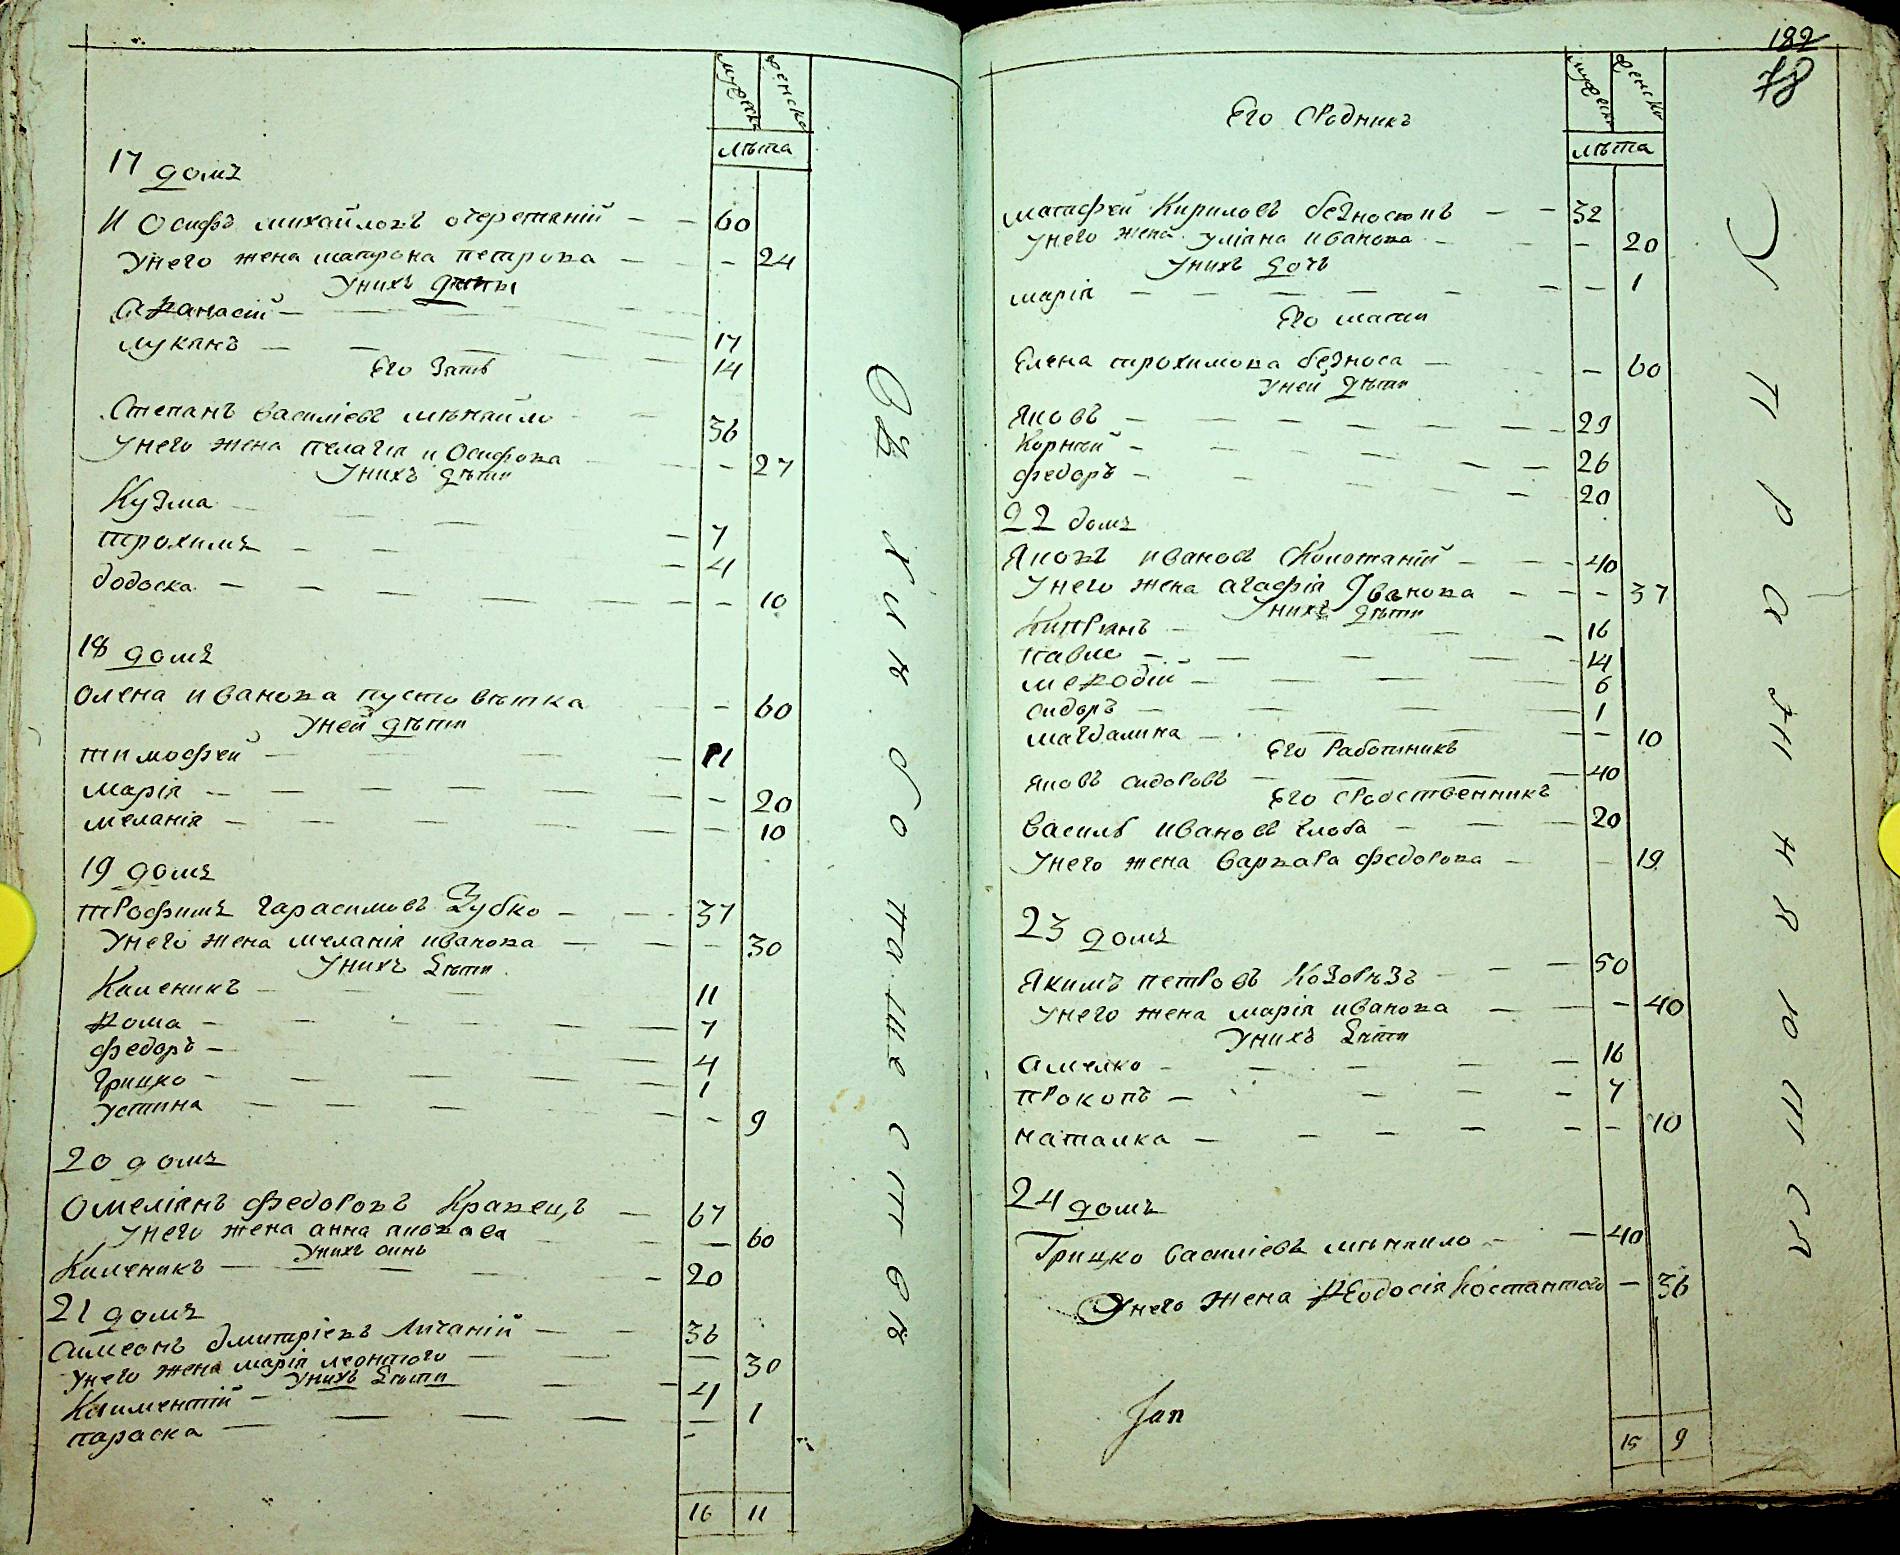 мужеска женска
лѣта
17 домъ
Иосифъ михайловъ очеретяній — — 60
Унего жена матрона петрова — — 24
Унихъ дѣты
Аѳанасій — 17
лукянъ — 14
Его Зять
Степанъ василіевъ мѣняйло — 36
Унего жена пелагія иосифова — 27
Унихъ дѣти
Кузма — 7
трохимъ — 4
додоска — 10
18 домъ
олена иванова пустовѣтка — 60
Уней дѣти
тимофей — 11
марія — 20
меланія — 10
19 домъ
трофимъ гарасимовъ Зубко — 37
Унего жена меланія иванова — 30
Унихъ дѣти
Каленикъ — 11
ѳома — 7
федоръ — 4
грицко — 1
устина — 9
20 домъ
омеліянъ федоровъ Кравецъ — 67
Унего жена анна яковлева — 60
Унихъ синъ
Каленикъ — 20
21 домъ
симеонъ дмитріевъ Личаній — 36
Унего жена марія леонтого — 30
Унихъ дѣти
Климентій — 4
параска — 1
16 11
122
78
мужеска женска
лѣта
Его сродникъ
матфей Кириловъ безносенъ — 32
Унего жена уліана иванова — 20
Унихъ дочь
марія — 1
Его мати
Елена трохимова безноса — 60
Уней дѣти
Яковъ — 29
Корней — 26
федоръ — 20
22 домъ
Яковъ ивановъ — 40
Унего жена агафія Іванова — 37
Унихъ дѣти
Кипріянъ — 16
павло — 14
меѳодій — 6
сидоръ — 1
магдалина — 10
Его работникъ
яковъ сидоровъ — 40
Его сродственникъ
василь ивановъ глоба — 20
Унего жена варвара федорова — 19
23 домъ
Якимъ петровъ Козорѣзъ — 50
Унего жена марія иванова — 40
Унихъ дѣти
омелко — 16
прокопъ — 7
наталка — 10
24 домъ
Грицко василіевъ мѣняйло — 40
Унего жена ѳеодосія Костантого — 36
15 9
упражняются